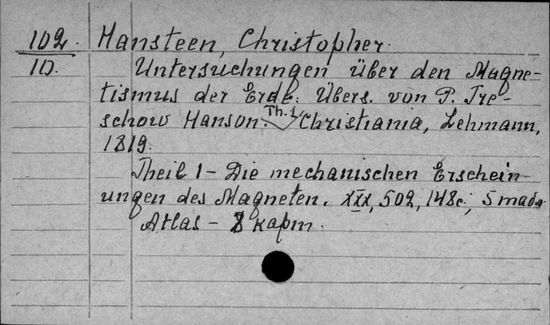 102. Hansteen, Christopher.
10. Untersuchungen über den Magne-
tismus der Erde. Übers. von P. Tre-
schow Hanson. Th. 1 Christiania, Lehmann,
1819.
Theil 1 - Die mechanischen Erschein-
ungen des Magneten. XXX, 502, 148c., 5
Atlas - 8 карт.